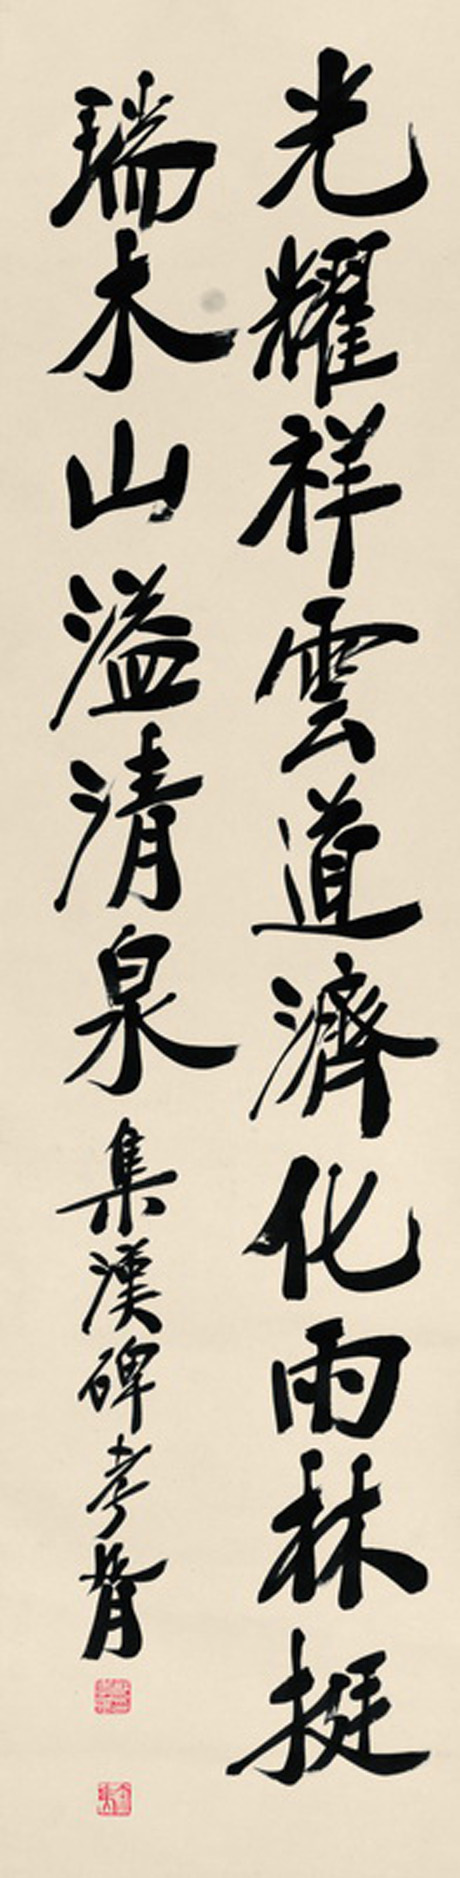 光耀祥雲道濟化雨林挺
瑞木山溢清泉
集漢碑 孝胥